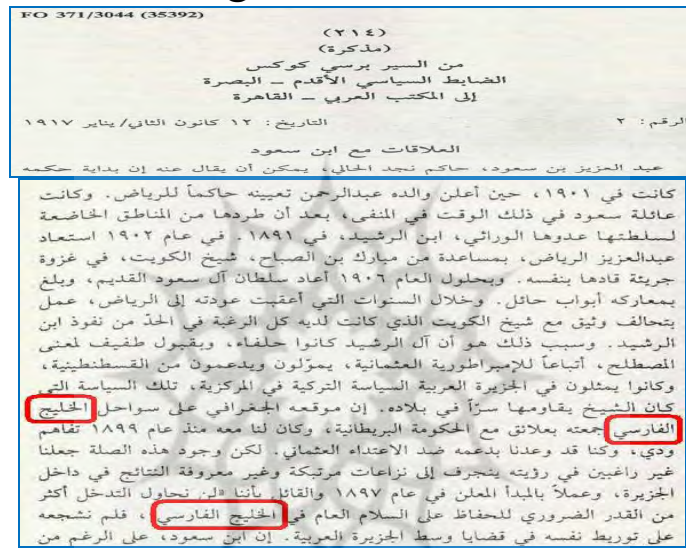 FO 371/3044 (35392)
(٢١٤)
(مذكرة)
من السير برسي كوكس
الضابط السياسي الأقدم – البصرة
إلى المكتب العربي – القاهرة
الرقم: ٢ التاريخ: ١٢ كانون الثاني/يناير ١٩١٧
العلاقات مع ابن سعود
عبد العزيز بن سعود، حاكم نجد الحالي، يمكن أن يقال عنه إن بداية حكمه
كانت في ١٩٠١، حين أعلن والده عبدالرحمن تعيينه حاكماً للرياض. وكانت
عائلة سعود في ذلك الوقت في المنفى، بعد أن طردها من المناطق الخاضعة
لسلطتها عدوها الوراثي، ابن الرشيد، في ١٨٩١. في عام ١٩٠٢ استعاد
عبدالعزيز الرياض، بمساعدة من مبارك بن الصباح، شيخ الكويت، في غزوة
جريئة قادها بنفسه. وبحلول العام ١٩٠٦ أعاد سلطان آل سعود القديم، وبلغ
بمعاركه أبواب حائل. وخلال السنوات التي أعقبت عودته إلى الرياض، عمل
بتحالف وثيق مع شيخ الكويت الذي كانت لديه كل الرغبة في الحدّ من نفوذ ابن
الرشيد. وسبب ذلك هو أن آل الرشيد كانوا حلفاء، وبقبول طفيف لمعنى
المصطلح، أتباعاً للإمبراطورية العثمانية، يموّلون ويدعمون من القسطنطينية،
وكانوا يمثلون في الجزيرة العربية السياسة التركية في المركزية، تلك السياسة التي
كان الشيخ يقاومها سرّاً في بلاده. إن موقعه الجغرافي على سواحل الخليج
الفارسي جمعته بعلائق مع الحكومة البريطانية، وكان لنا معه منذ عام ١٨٩٩ تفاهم
ودي، وكنا قد وعدنا بدعمه ضد الاعتداء العثماني. لكن وجود هذه الصلة جعلنا
غير راغبين في رؤيته ينجرف إلى نزاعات مرتبكة وغير معروفة النتائج في داخل
الجزيرة، وعملاً بالمبدأ المعلن في عام ١٨٩٧ والقائل بأننا «لن نحاول التدخل أكثر
من القدر الضروري للحفاظ على السلام العام في الخليج الفارسي، فلم نشجعه
على توريط نفسه في قضايا وسط الجزيرة العربية. إن ابن سعود، على الرغم من